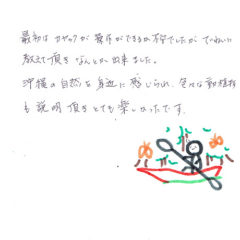 最初はカヤックが操作ができるか不安でしたがていねいに
教えて頂きなんとか出来ました。
沖縄の自然を身近に感じられ、色々な動植物
も説明頂きとても楽しかったです。